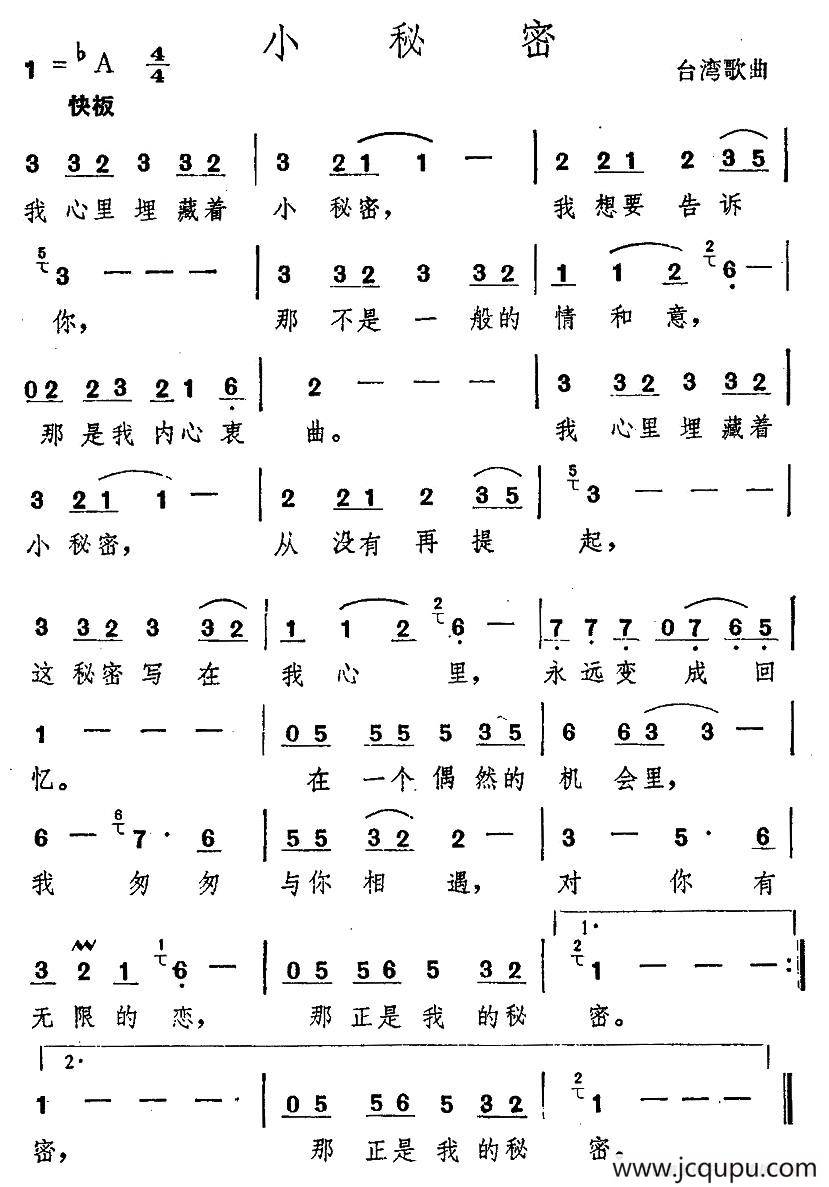 小秘密
1=♭A 4/4
台湾歌曲
快板
3 32 3 32 | 3 21 1 — | 2 21 2 35 |
我心里埋藏着 小秘密， 我想要告诉
5 3 — — — | 3 32 3 32 | 1 1 2 2 6 — |
你， 那不是一般的 情和意，
02 23 21 6 | 2 — — — | 3 32 3 32 |
那是我内心衷 曲。 我心里埋藏着
3 21 1 — | 2 21 2 35 | 5 3 — — — |
小秘密， 从没有再提 起，
3 32 3 32 | 1 1 2 2 6 — | 7 7 7 07 6 5 |
这秘密写在 我心里， 永远变成回
1 — — — | 05 55 5 35 | 6 63 3 — |
忆。 在一个偶然的 机会里，
6 — 6 7· 6 | 55 32 2 — | 3 — 5· 6 |
我匆匆 与你相遇， 对你有
1.
3 2 1 1 6 — | 05 56 5 32 | 2 1 — — — :‖
无限的恋， 那正是我的秘 密。
2.
1 — — — | 05 56 5 32 | 2 1 — — — ‖
密， 那正是我的秘 密。
www.jcqupu.com